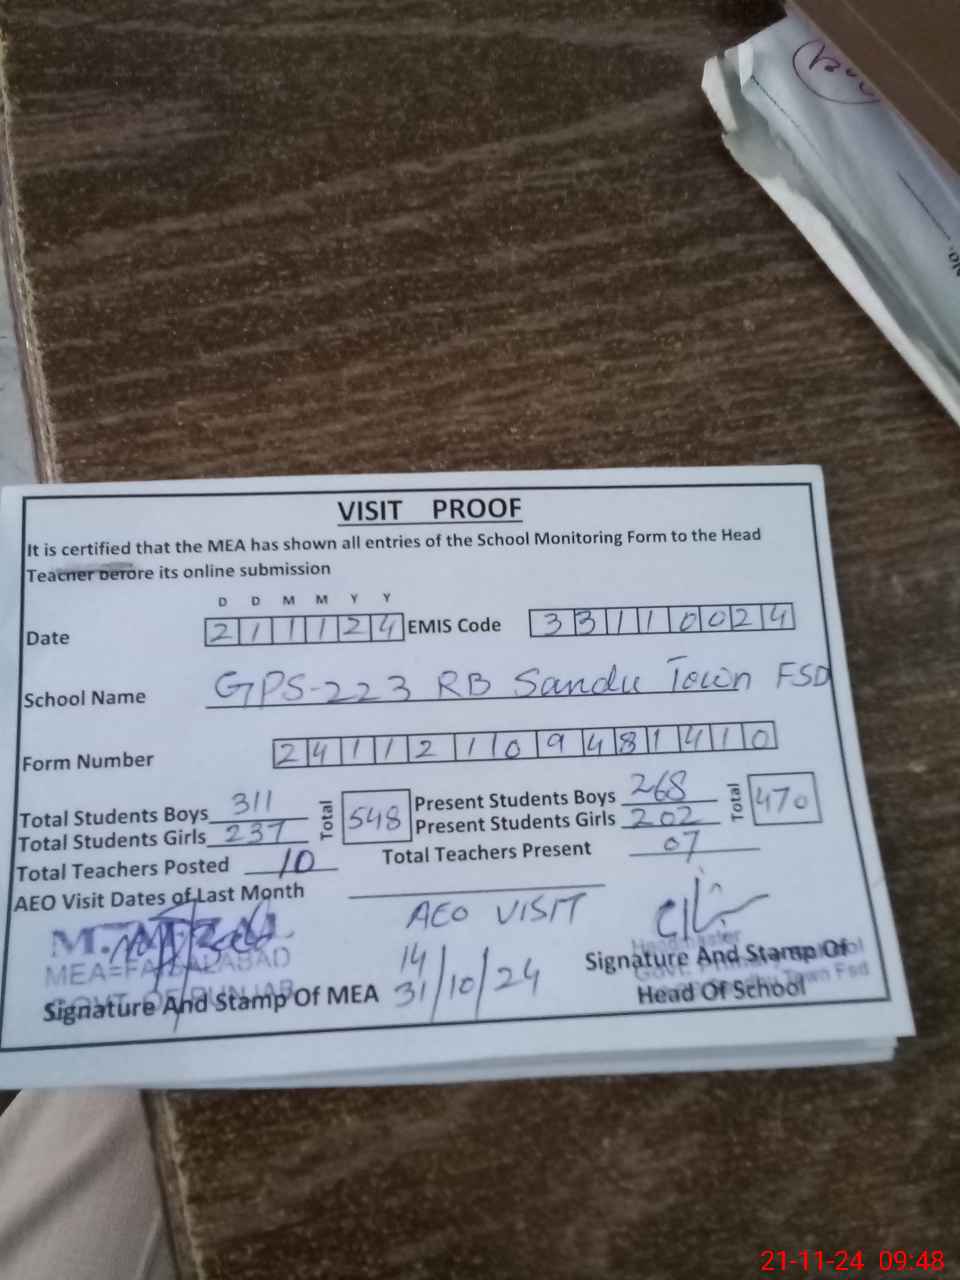 VISIT PROOF
It is certified that the MEA has shown all entries of the School Monitoring Form to the Head
Teacher before its online submission
D D M M Y Y
Date 211124 EMIS Code 33110024
School Name GPS-223 RB Sandu Town FSD
Form Number 24112109481410
Total Students Boys 311 Total 548 Present Students Boys 268 Total 470
Total Students Girls 237 Present Students Girls 202
Total Teachers Posted 10 Total Teachers Present 07
AEO Visit Dates of Last Month
AEO VISIT
14
31/10/24
MEA=FAISALABAD
GOVT. OF PUNJAB
Signature And Stamp Of MEA
Headmaster
Town Fsd
Signature And Stamp Of
Head Of School
No.
21-11-24 09:48